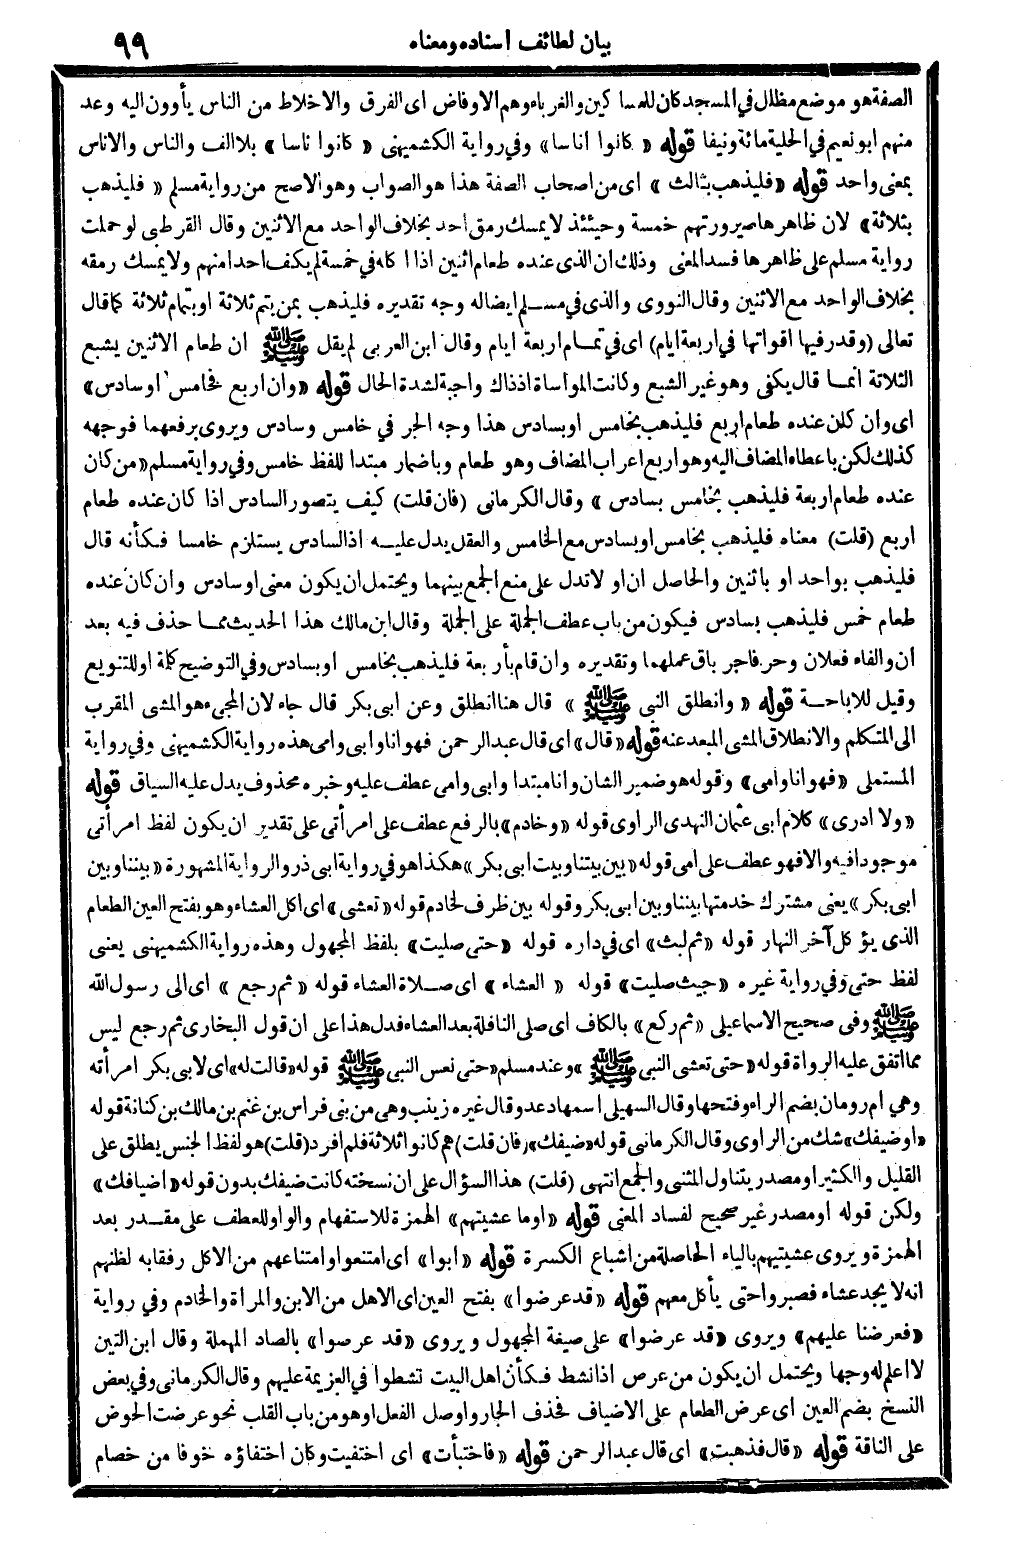 بيان لطائف اسناده ومعناه
٩٩
الصفة هو موضع مظلل في المسجد كان للمساكين والغرباء وهم الاوفاض اى الفرق والاخلاط من الناس يأوون اليه وعد
منهم ابو نعيم في الحلية مائة ونيفا قوله « كانوا اناسا » وفي رواية الكشميهنى « كانوا ناسا » بلا الف والناس والاناس
بمعنى واحد قوله « فليذهب بثالث » اى من اصحاب الصفة هذا هو الصواب وهو الاصح من رواية مسلم « فليذهب
بثلاثة » لان ظاهرها صيرورتهم خمسة وحينئذ لا يمسك رمق احد بخلاف الواحد مع الاثنين وقال القرطبى لو حملت
رواية مسلم على ظاهرها فسد المعنى وذلك ان الذى عنده طعام اثنين اذا اكله في خمسة لم يكف احدا منهم ولا يمسك رمقه
بخلاف الواحد مع الاثنين وقال النووى والذى في مسلم ايضا له وجه تقديره فليذهب بمن يتم ثلاثة او بتمام ثلاثة كما قال
تعالى (وقدر فيها اقواتها في اربعة ايام) اى في تمام اربعة ايام وقال ابن العربى لم يقل ﷺ ان طعام الاثنين يشبع
الثلاثة انما قال يكفى وهو غير الشبع وكانت المواساة اذذاك واجبة لشدة الحال قوله « وان اربع فخامس او سادس »
اى وان كان عنده طعام اربع فليذهب بخامس او بسادس هذا وجه الجر في خامس وسادس ويروى برفعهما فوجهه
كذلك لكن باعطاء المضاف اليه وهو اربع اعراب المضاف وهو طعام وباضمار مبتدا للفظ خامس وفي رواية مسلم « من كان
عنده طعام اربعة فليذهب بخامس بسادس » وقال الكرمانى (فان قلت) كيف يتصور السادس اذا كان عنده طعام
اربع (قلت) معناه فليذهب بخامس او بسادس مع الخامس والعقل يدل عليه اذ السادس يستلزم خامسا فكأنه قال
فليذهب بواحد او باثنين والحاصل ان او لا تدل على منع الجمع بينهما ويحتمل ان يكون معنى او سادس وان كان عنده
طعام خمس فليذهب بسادس فيكون من باب عطف الجملة على الجملة وقال ابن مالك هذا الحديث مما حذف فيه بعد
ان والفاء فعلان وحرفا جر باق عملهما وتقديره وان قام بأربعة فليذهب بخامس او بسادس وفي التوضيح كلمة او للتنويع
وقيل للاباحة قوله « وانطلق النبى ﷺ » قال هنا انطلق وعن ابى بكر قال جاء لان المجىء هو المشى المقرب
الى المتكلم والانطلاق المشى المبعد عنه قوله « قال » اى قال عبدالرحمن فهو انا وابى وامى هذه رواية الكشميهنى وفي رواية
المستملى « فهو انا وامى » وقوله هو ضمير الشان وانا مبتدا وابى وامى عطف عليه وخبره محذوف يدل عليه السياق قوله
« ولا ادرى » كلام ابى عثمان النهدى الراوى قوله « وخادم » بالرفع عطف على امرأتى على تقدير ان يكون لفظ امرأتى
موجودا فيه والا فهو عطف على امى قوله « بين بيتنا وبيت ابى بكر » هكذا هو في رواية ابى ذر والرواية المشهورة « بيننا وبين
ابى بكر » يعنى مشترك خدمتها بيننا وبين ابى بكر وقوله بين ظرف لخادم قوله « تعشى » اى اكل العشاء وهو بفتح العين الطعام
الذى يؤكل آخر النهار قوله « ثم لبث » اى في داره قوله « حتى صليت » بلفظ المجهول وهذه رواية الكشميهنى يعنى
لفظ حتى وفي رواية غيره « حيث صليت » قوله « العشاء » اى صلاة العشاء قوله « ثم رجع » اى الى رسول الله
ﷺ وفى صحيح الاسماعيلى « ثم ركع » بالكاف اى صلى النافلة بعد العشاء فدل هذا على ان قول البخارى ثم رجع ليس
مما اتفق عليه الرواة قوله « حتى تعشى النبى ﷺ » وعند مسلم « حتى نعس النبى ﷺ قوله « قالت له » اى لابى بكر امرأته
وهي ام رومان بضم الراء وفتحها وقال السهيلى اسمها دعد وقال غيره زينب وهى من بنى فراس بن غنم بن مالك بن كنانة قوله
« او ضيفك » شك من الراوى وقال الكرمانى قوله « ضيفك » (فان قلت) هم كانوا ثلاثة فلم افرد (قلت) هو لفظ الجنس يطلق على
القليل والكثير او مصدر يتناول المثنى والجمع انتهى (قلت) هذا السؤال على ان نسخته كانت ضيفك بدون قوله « اضيافك »
ولكن قوله او مصدر غير صحيح لفساد المعنى قوله « اوما عشيتهم » الهمزة للاستفهام والواو للعطف على مقدر بعد
الهمزة ويروى عشيتيهم بالياء الحاصلة من اشباع الكسرة قوله « ابوا » اى امتنعوا وامتناعهم من الاكل رفقا به لظنهم
انه لا يجد عشاء فصبروا حتى يأكل معهم قوله « قد عرضوا » بفتح العين اى الاهل من الابن والمراة والخادم وفي رواية
« فعرضنا عليهم » ويروى « قد عرضوا » على صيغة المجهول ويروى « قد عرصوا » بالصاد المهملة وقال ابن التين
لا اعلم له وجها ويحتمل ان يكون من عرص اذا نشط فكأن اهل البيت نشطوا في العزيمة عليهم وقال الكرمانى وفي بعض
النسخ بضم العين اى عرض الطعام على الاضياف فحذف الجار واوصل الفعل او هو من باب القلب نحو عرضت الحوض
على الناقة قوله « قال فذهبت » اى قال عبدالرحمن قوله « فاختبأت » اى اختفيت وكان اختفاؤه خوفا من خصام